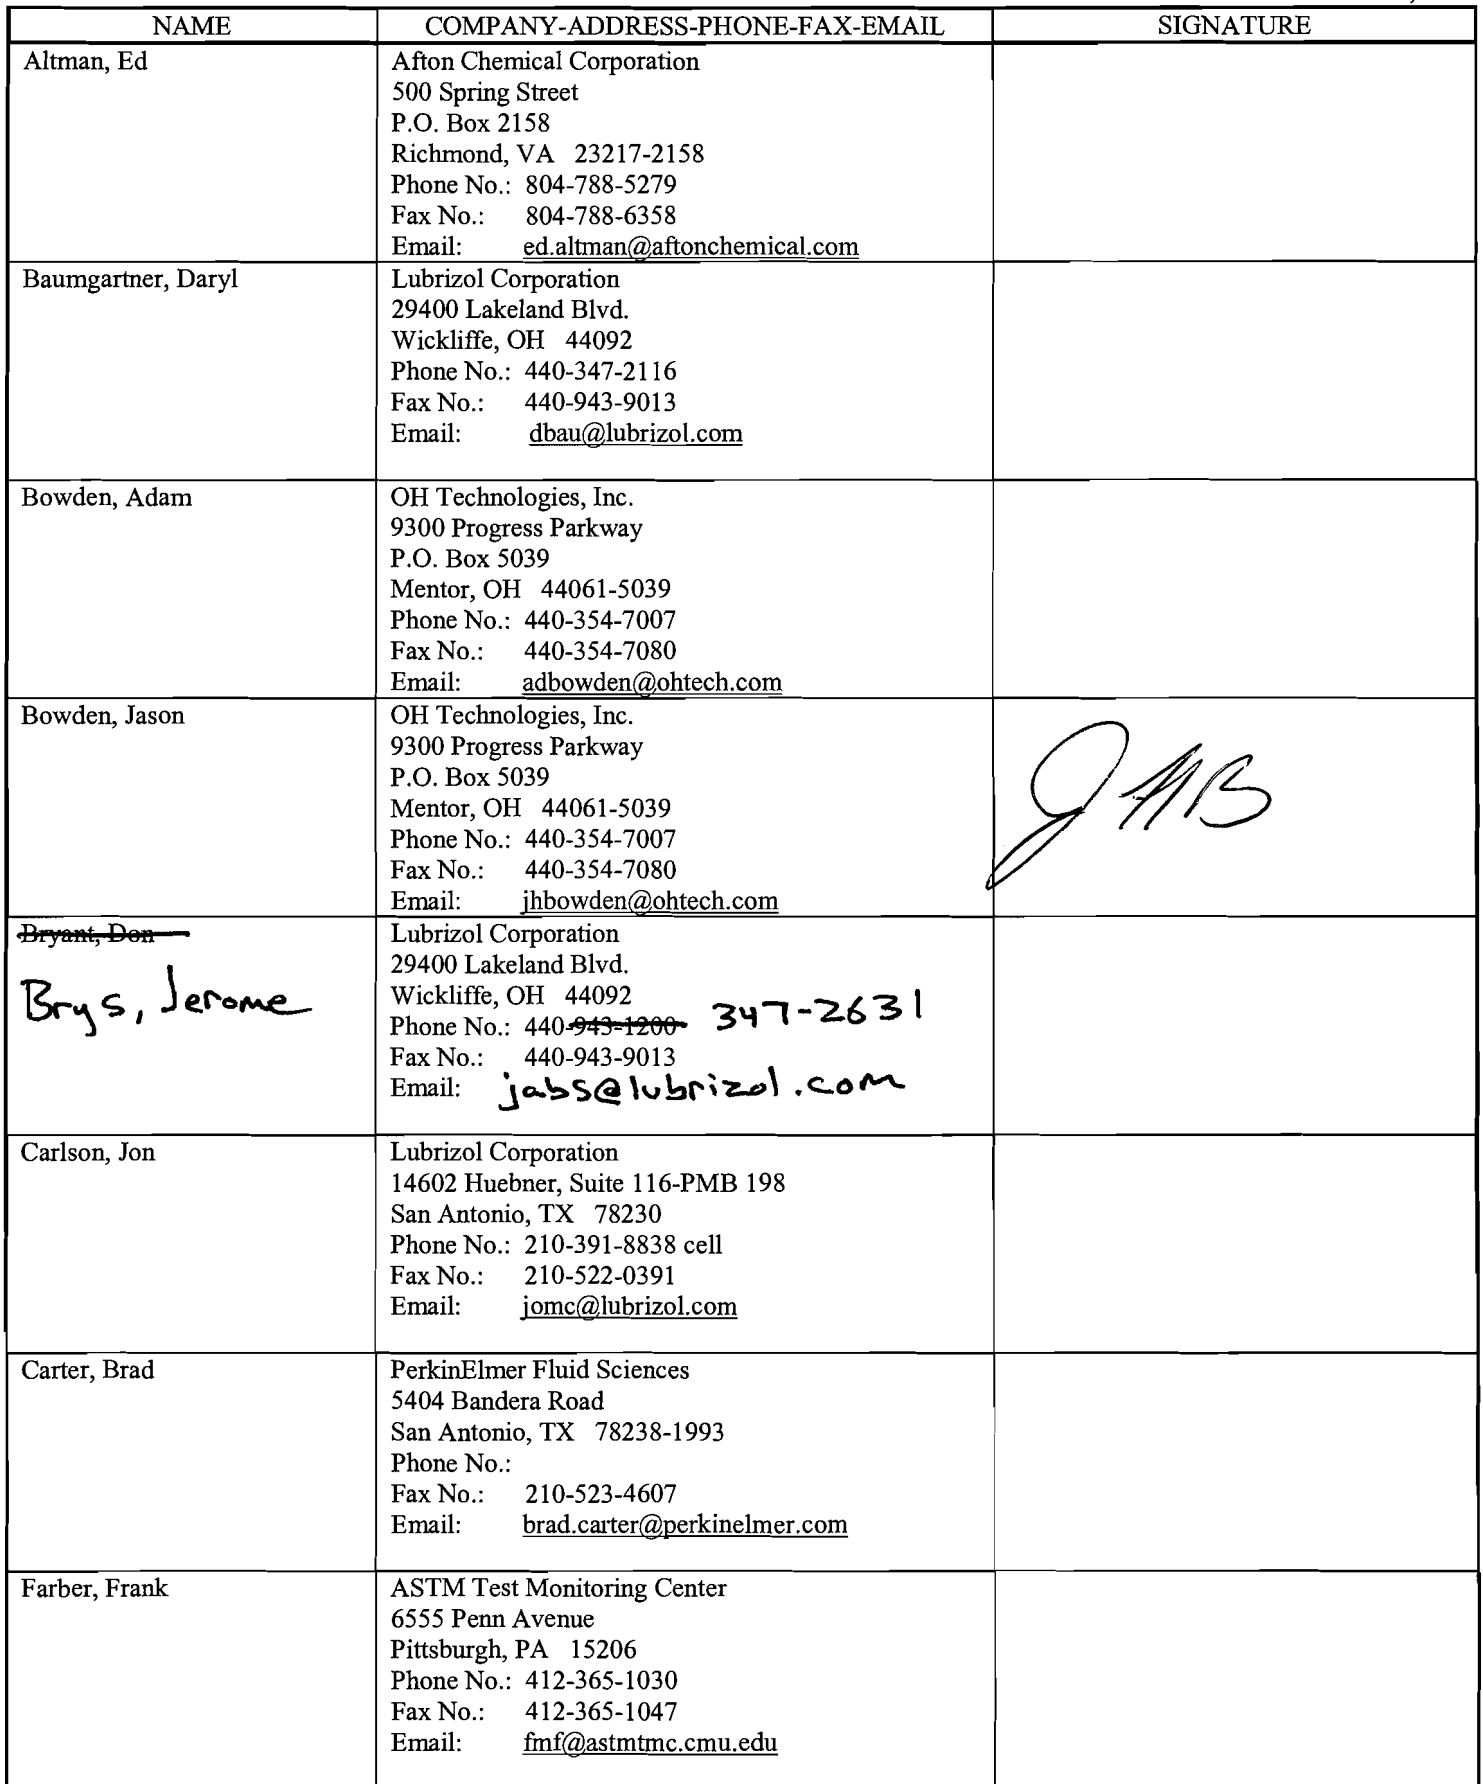 NAME COMPANY-ADDRESS-PHONE-FAX-EMAIL SIGNATURE
Altman, Ed
Afton Chemical Corporation
500 Spring Street
P.O. Box 2158
Richmond, VA 23217-2158
Phone No.: 804-788-5279
Fax No.: 804-788-6358
Email: ed.altman@aftonchemical.com
Baumgartner, Daryl
Lubrizol Corporation
29400 Lakeland Blvd.
Wickliffe, OH 44092
Phone No.: 440-347-2116
Fax No.: 440-943-9013
Email: dbau@lubrizol.com
Bowden, Adam
OH Technologies, Inc.
9300 Progress Parkway
P.O. Box 5039
Mentor, OH 44061-5039
Phone No.: 440-354-7007
Fax No.: 440-354-7080
Email: adbowden@ohtech.com
Bowden, Jason
OH Technologies, Inc.
9300 Progress Parkway
P.O. Box 5039
Mentor, OH 44061-5039
Phone No.: 440-354-7007
Fax No.: 440-354-7080
Email: jhbowden@ohtech.com
JHB
Bryant, Don
Brys, Jerome
Lubrizol Corporation
29400 Lakeland Blvd.
Wickliffe, OH 44092
Phone No.: 440-943-1200 347-2631
Fax No.: 440-943-9013
Email: jabs@lubrizol.com
Carlson, Jon
Lubrizol Corporation
14602 Huebner, Suite 116-PMB 198
San Antonio, TX 78230
Phone No.: 210-391-8838 cell
Fax No.: 210-522-0391
Email: jomc@lubrizol.com
Carter, Brad
PerkinElmer Fluid Sciences
5404 Bandera Road
San Antonio, TX 78238-1993
Phone No.:
Fax No.: 210-523-4607
Email: brad.carter@perkinelmer.com
Farber, Frank
ASTM Test Monitoring Center
6555 Penn Avenue
Pittsburgh, PA 15206
Phone No.: 412-365-1030
Fax No.: 412-365-1047
Email: fmf@astmtmc.cmu.edu